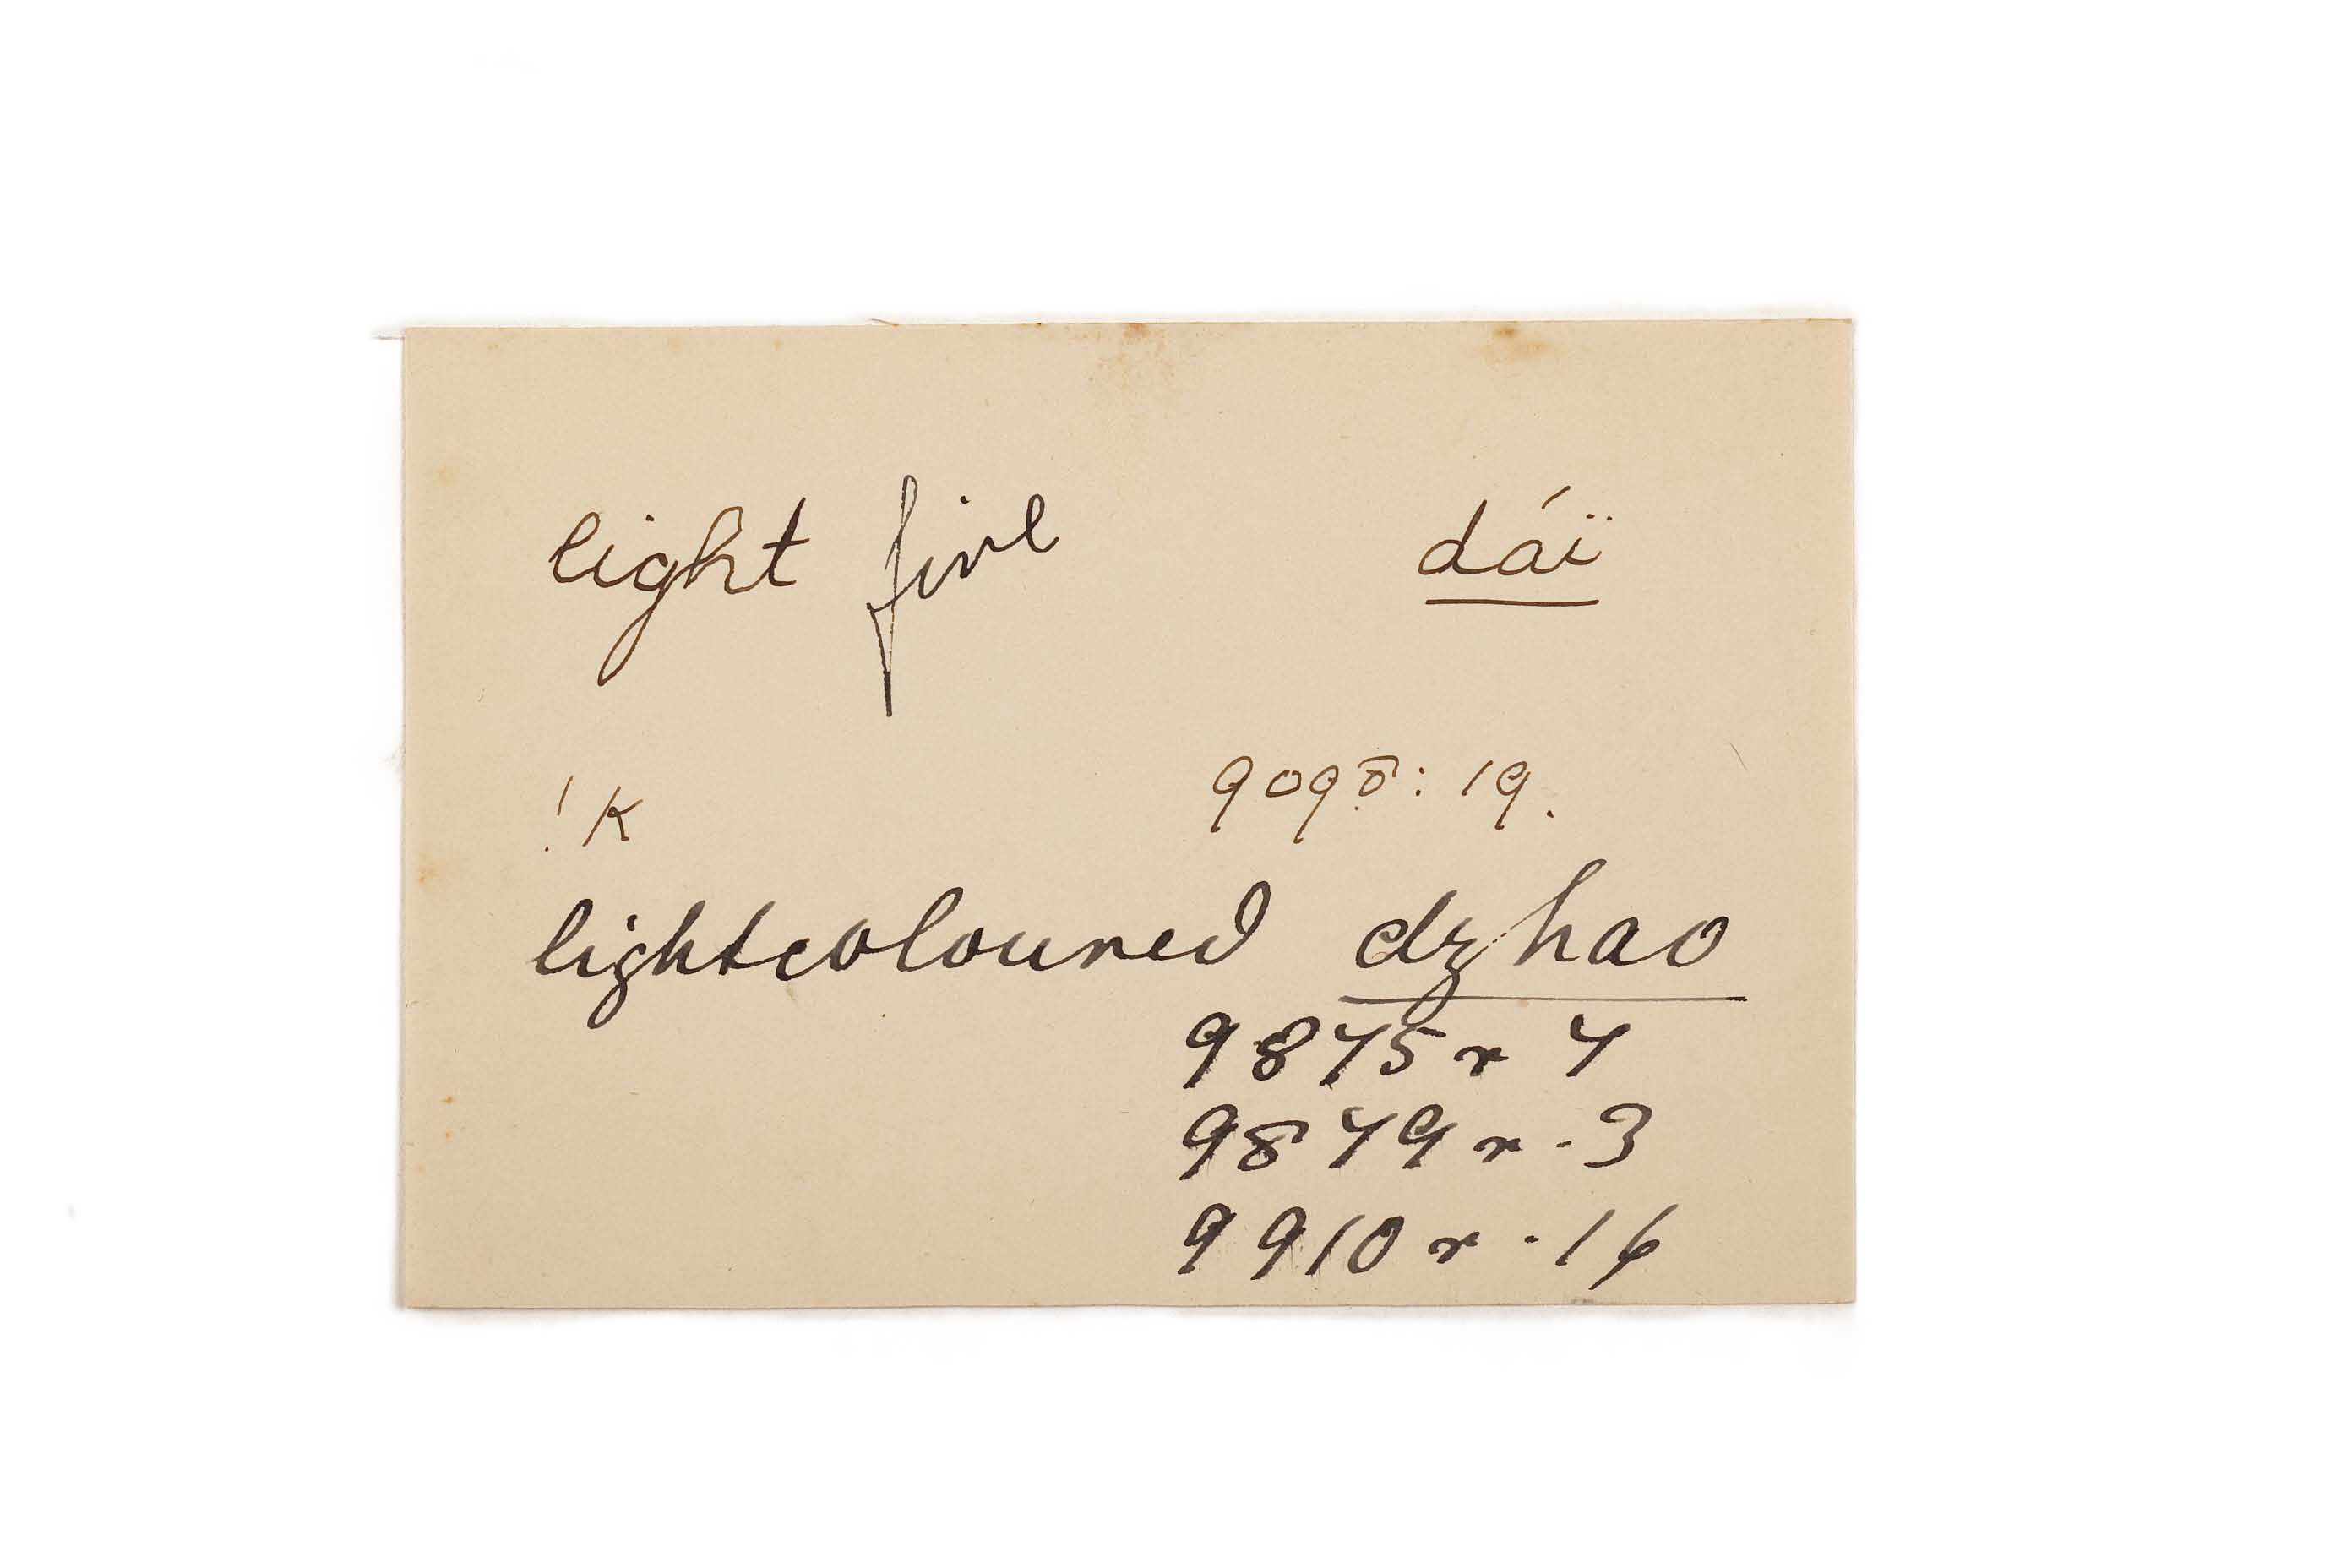 light fire dáï
!K 9098: 19.
lightcoloured dzhao
9875 r 7
9879 r. 3
9910 r. 16